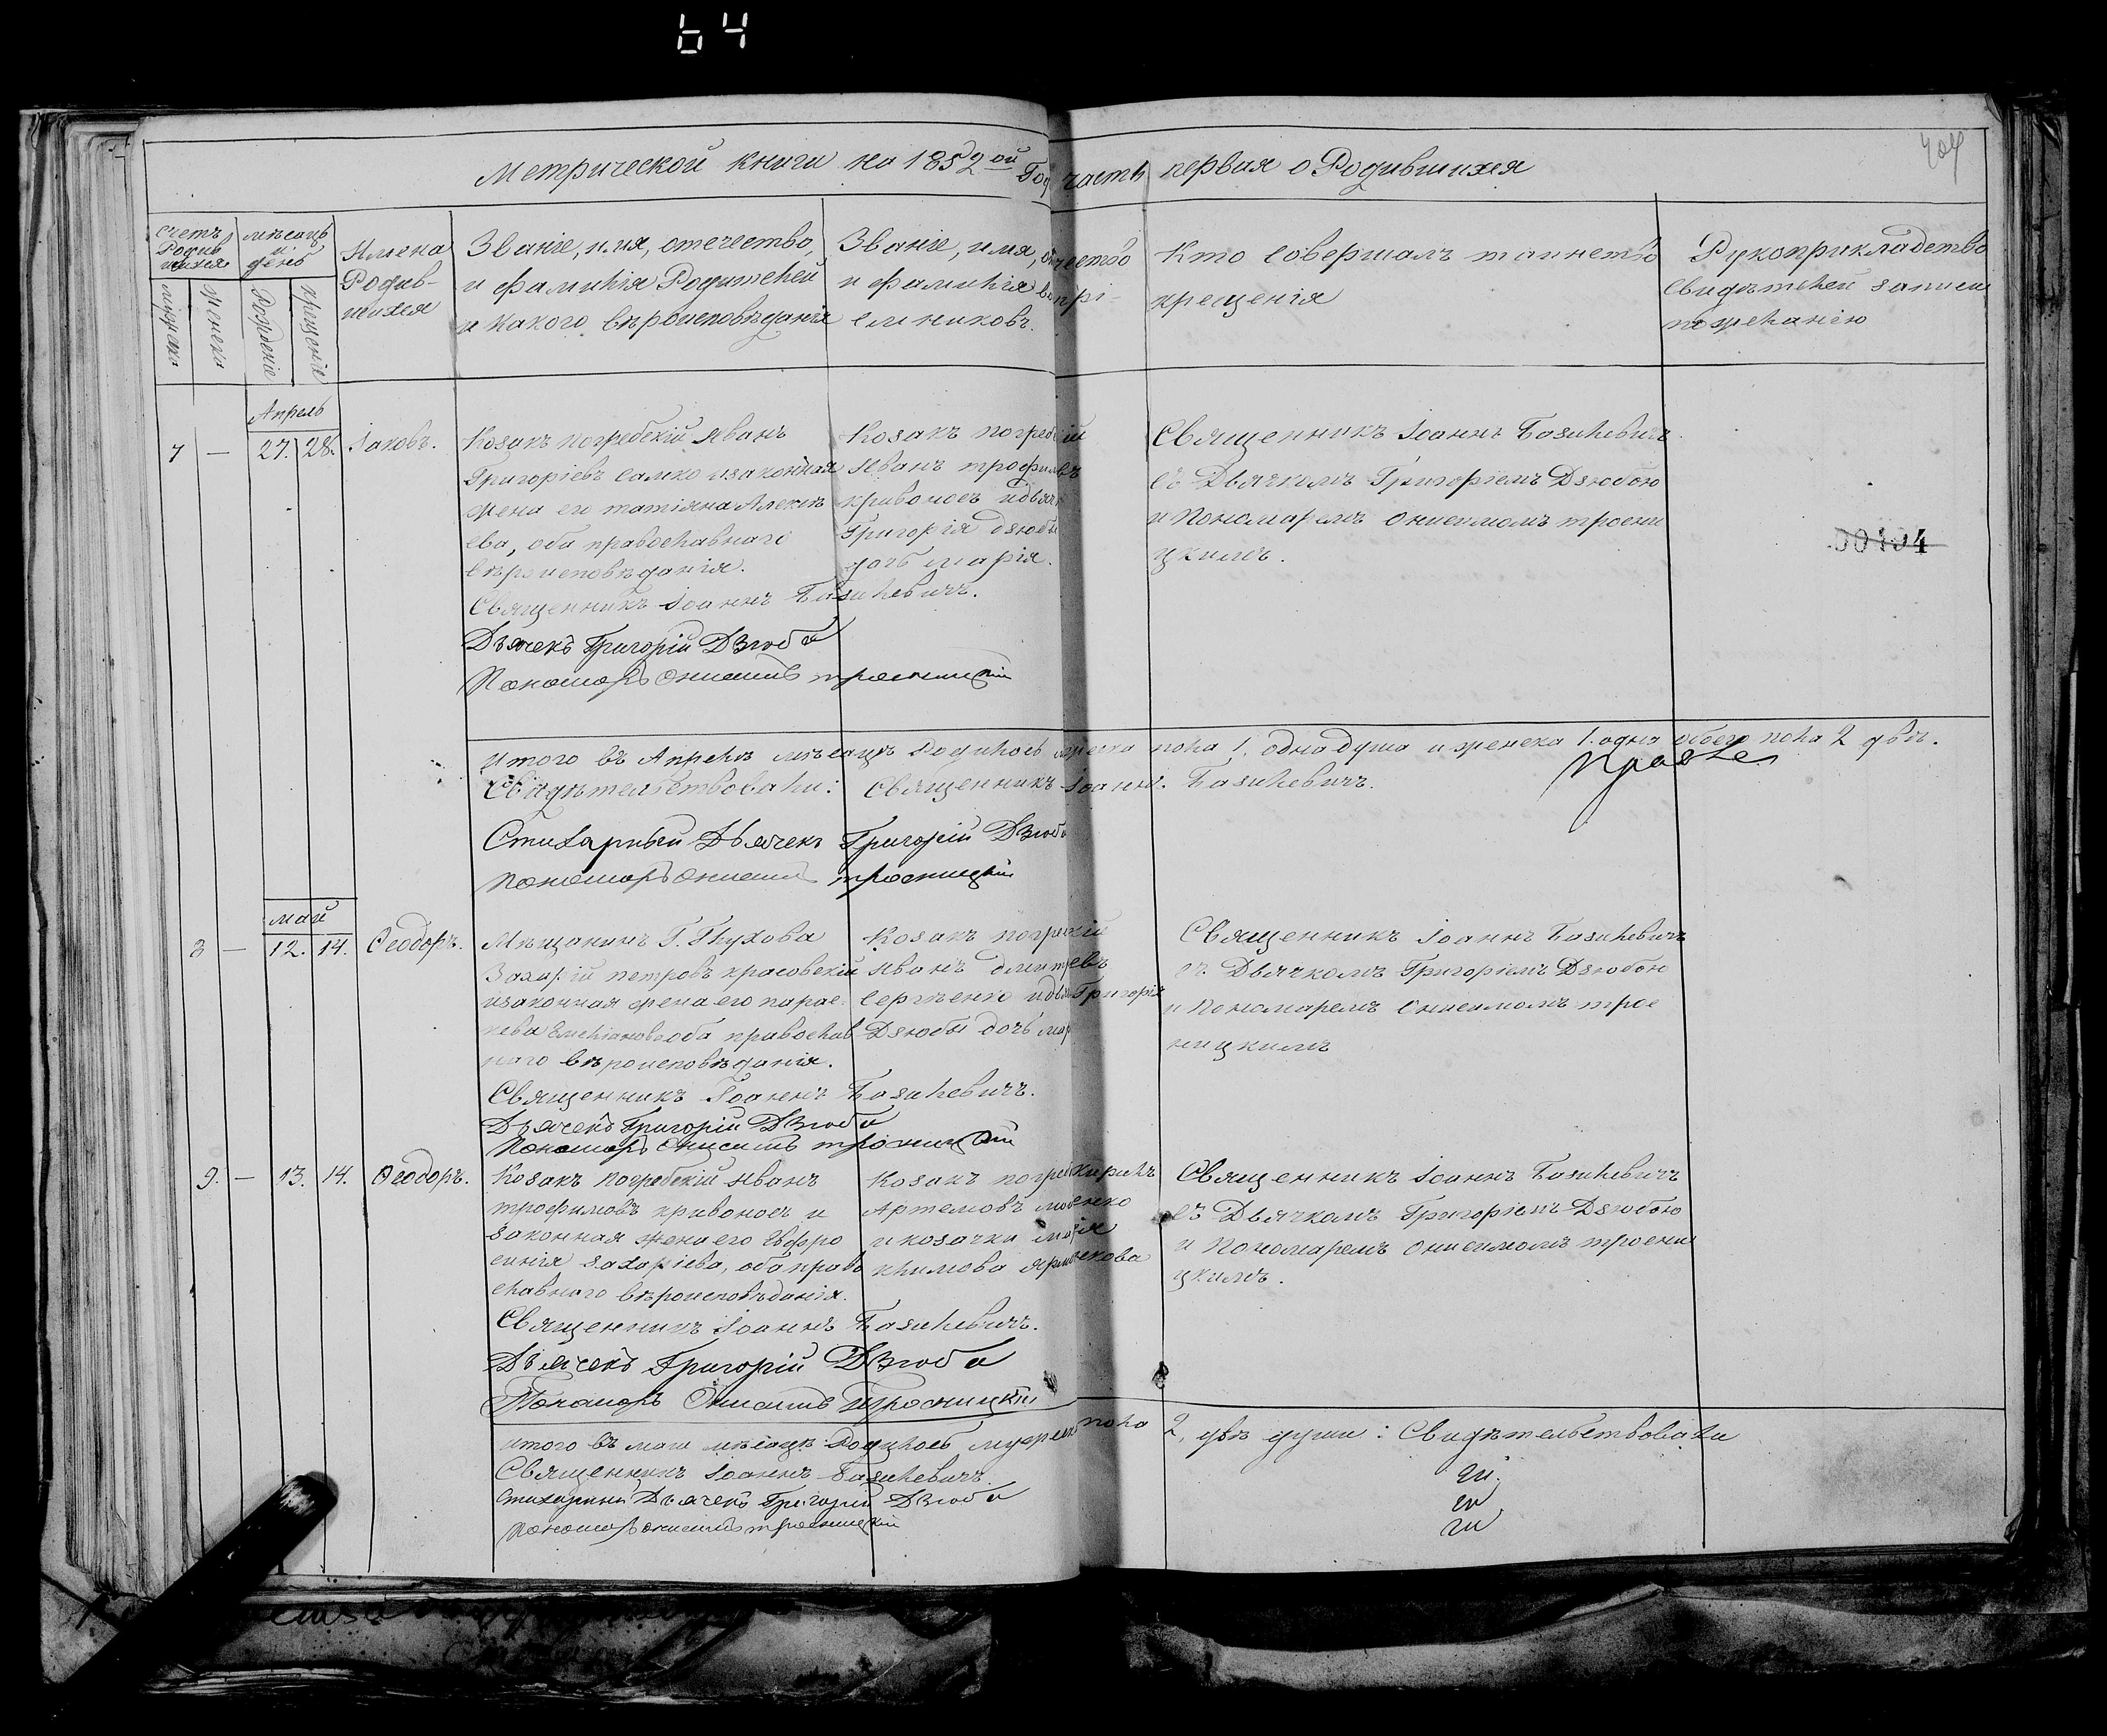 64
Метрической книги на 1852ой Год часть первая о Родившихся
Счетъ Родившихся
мѣсяцъ и день
мужеск
женска
Рожденіе
крещеніе
Имена Родившихся
Званіе, имя, отечество,
и фамилія Родителей
и какого вѣроисповѣданія
Званіе, имя, отчество
и фамилія воспрі-
емниковъ.
Кто совершалъ таинство
крещенія
Рукоприкладство
свидѣтелей записи
по желанію
Апрель
7 — 27. 28. Іаковъ.
Козакъ погребскій Иванъ
Григоріевъ самко изаконная
жена его татіяна Алексѣ
ева, оба православнаго
вѣроисповѣданія.
Козакъ погребскій
Иванъ трофимовъ
кривоносъ идьяч
Григорія дзюбы
дочь марія.
Священникъ Іоаннъ Базилевичъ
съ Дьячкомъ Григоріемъ Дзюбою
и Пономаремъ Онисимомъ тросни
цкимъ.
00104
Священникъ Іоаннъ Базилевичъ.
Дьячекъ Григорій Дзюба
Пономарь Онисимъ тросницкій
итого въ Апрелѣ мѣсяцѣ Родилось мужеска пола 1. одна душа и женска 1. одна обоего пола 2 двѣ.
Свидѣтельствовали: Священникъ Іоаннъ Базилевичъ.
Стихарный Дьячекъ Григорій Дзюба
Пономарь Онисимъ тросницкій
май
8 — 12. 14. Ѳеодоръ.
Мѣщанинъ Г. Глухова
Захарій петровъ красовскій
изаконная жена его парас-
кева Емеліановаоба православ
наго вѣроисповѣданія.
Козакъ погребскій
Иванъ дмитревъ
сергѣенко идья Григорія
Дзюбы дочь мар
Священникъ Іоаннъ Базилевичъ
съ Дьячкомъ Григоріемъ Дзюбою
и Пономаремъ Онисимомъ трос
ницкимъ
Священникъ Іоаннъ Базилевичъ.
Дьячекъ Григорій Дзюба
Пономарь Онисимъ тросницкій
9. — 13. 14. Ѳеодоръ.
Козакъ Погребскій Иванъ
трофимовъ кривоносъ и
законная жена его Евфро
синія захаріева, оба право
славнаго вѣроисповѣданія.
Козакъ погреб Кирилъ
Артемовъ
и козачки марія
климова
Священникъ Іоаннъ Базилевичъ
съ Дьячкомъ Григоріемъ Дзюбою
и Пономаремъ Онисимомъ тросни
цкимъ.
Священникъ Іоаннъ Базилевичъ.
Дьячекъ Григорій Дзюба
Пономарь Онисимъ Тросницкій
итого въ маи мѣсяцѣ Родилось мужеска пола 2, двѣ души: Свидѣтельствовали
Священникъ Іоаннъ Базилевичъ.
Стихарный Дьячекъ Григорій Дзюба
Пономарь Онисимъ тросницкій